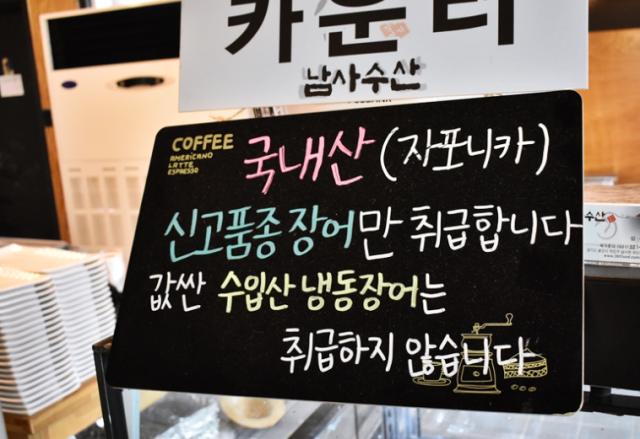 카운터
남사수산
COFFEE
AMERICANO
LATTE
ESPRESSO
국내산 (자포니카)
신고품종 장어만 취급합니다
값싼 수입산 냉동장어는
취급하지 않습니다
수산